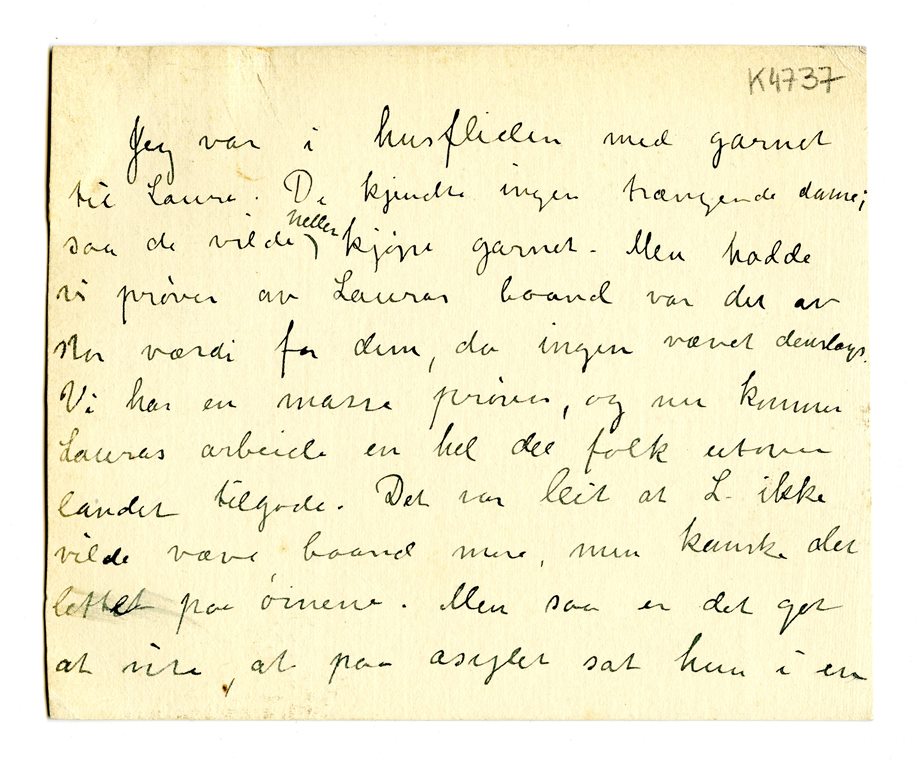 K4737
Jeg var i husfliden med garnet
til Laura. De kjendte ingen trængende dame;
saa de vilde heller kjøpe garnet. Men hadde
vi prøver av Lauras baand var det av
stor værdi for dem, da ingen vævet denslags.
Vi har en masse prøver, og nu kommer
Lauras arbeide en hel del folk utover
landet tilgode. Det var leit at L. ikke
vilde væve baand mere, men kanske det
lettet paa øinene. Men saa er det got
at vite, at paa asylet sat hun i en